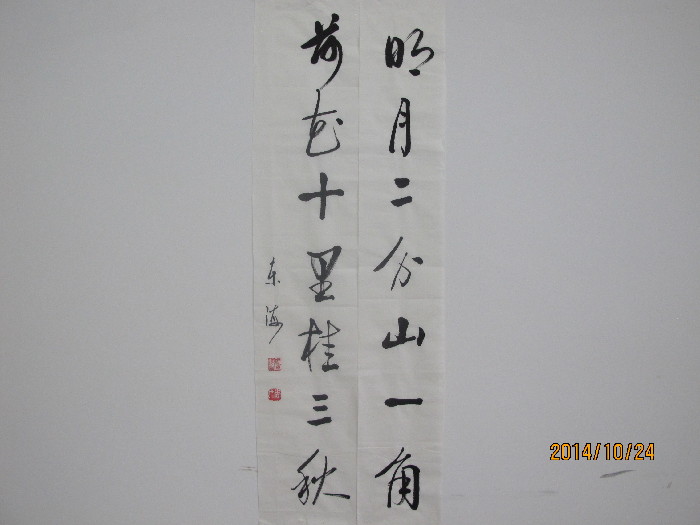 明月二分山一角
荷花十里桂三秋
东海
2014/10/24